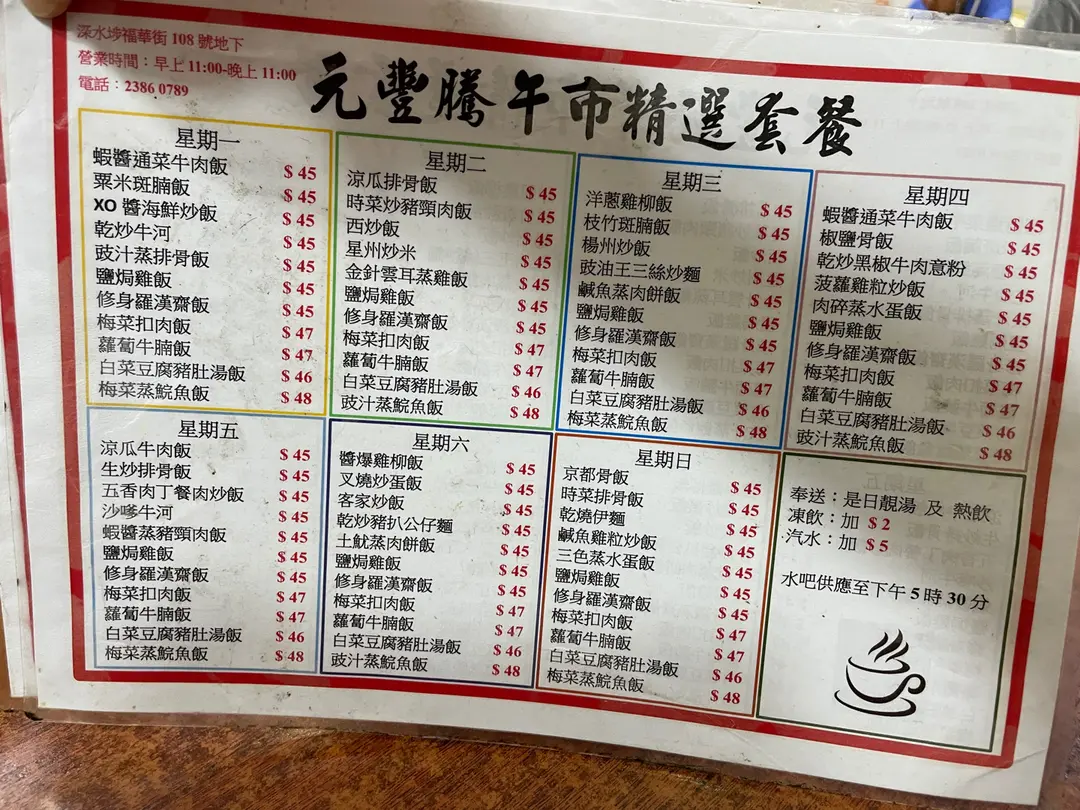 深水埗福華街 108 號地下
營業時間：早上 11:00-晚上 11:00
電話：2386 0789
元豐騰午市精選套餐
星期一
蝦醬通菜牛肉飯 $ 45
粟米斑腩飯 $ 45
XO 醬海鮮炒飯 $ 45
乾炒牛河 $ 45
豉汁蒸排骨飯 $ 45
鹽焗雞飯 $ 45
修身羅漢齋飯 $ 45
梅菜扣肉飯 $ 47
蘿蔔牛腩飯 $ 47
白菜豆腐豬肚湯飯 $ 46
梅菜蒸鯇魚飯 $ 48
星期二
涼瓜排骨飯 $ 45
時菜炒豬頸肉飯 $ 45
西炒飯 $ 45
星州炒米 $ 45
金針雲耳蒸雞飯 $ 45
鹽焗雞飯 $ 45
修身羅漢齋飯 $ 45
梅菜扣肉飯 $ 47
蘿蔔牛腩飯 $ 47
白菜豆腐豬肚湯飯 $ 46
豉汁蒸鯇魚飯 $ 48
星期三
洋蔥雞柳飯 $ 45
枝竹斑腩飯 $ 45
楊州炒飯 $ 45
豉油王三絲炒麵 $ 45
鹹魚蒸肉餅飯 $ 45
鹽焗雞飯 $ 45
修身羅漢齋飯 $ 45
梅菜扣肉飯 $ 47
蘿蔔牛腩飯 $ 47
白菜豆腐豬肚湯飯 $ 46
梅菜蒸鯇魚飯 $ 48
星期四
蝦醬通菜牛肉飯 $ 45
椒鹽骨飯 $ 45
乾炒黑椒牛肉意粉 $ 45
菠蘿雞粒炒飯 $ 45
肉碎蒸水蛋飯 $ 45
鹽焗雞飯 $ 45
修身羅漢齋飯 $ 45
梅菜扣肉飯 $ 47
蘿蔔牛腩飯 $ 47
白菜豆腐豬肚湯飯 $ 46
豉汁蒸鯇魚飯 $ 48
星期五
涼瓜牛肉飯 $ 45
生炒排骨飯 $ 45
五香肉丁餐肉炒飯 $ 45
沙嗲牛河 $ 45
蝦醬蒸豬頸肉飯 $ 45
鹽焗雞飯 $ 45
修身羅漢齋飯 $ 45
梅菜扣肉飯 $ 47
蘿蔔牛腩飯 $ 47
白菜豆腐豬肚湯飯 $ 46
梅菜蒸鯇魚飯 $ 48
星期六
醬爆雞柳飯 $ 45
叉燒炒蛋飯 $ 45
客家炒飯 $ 45
乾炒豬扒公仔麵 $ 45
土魷蒸肉餅飯 $ 45
鹽焗雞飯 $ 45
修身羅漢齋飯 $ 45
梅菜扣肉飯 $ 47
蘿蔔牛腩飯 $ 47
白菜豆腐豬肚湯飯 $ 46
豉汁蒸鯇魚飯 $ 48
星期日
京都骨飯 $ 45
時菜排骨飯 $ 45
乾燒伊麵 $ 45
鹹魚雞粒炒飯 $ 45
三色蒸水蛋飯 $ 45
鹽焗雞飯 $ 45
修身羅漢齋飯 $ 45
梅菜扣肉飯 $ 47
蘿蔔牛腩飯 $ 47
白菜豆腐豬肚湯飯 $ 46
梅菜蒸鯇魚飯 $ 48
奉送：是日靚湯 及 熱飲
凍飲：加 $ 2
汽水：加 $ 5
水吧供應至下午 5 時 30 分